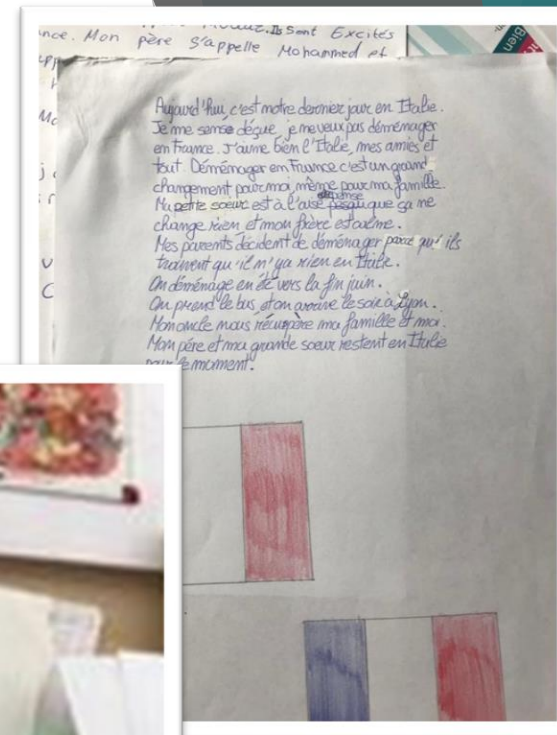 nce. Mon père s'appelle Mohammed et
Ils Sont Excités
Bien
Aujourd'hui, c'est notre dernier jour en Italie.
Je me sense déçue, je ne veux pas déménager
en France. J'aime bien l'Italie, mes amies et
tout. Déménager en France c'est un grand
changement pour moi, même pour ma famille.
Ma petite soeur est à l'aise que ça ne
change rien et mon frère est même.
Mes parents décident de déménager parce qu'ils
trouvent qu'il n'y a rien en Italie.
On déménage en été vers la fin juin.
On prend le bus, et on arrive le soir à Lyon.
Mon oncle nous récupère ma famille et moi.
Mon père et ma grande soeur restent en Italie
pour le moment.